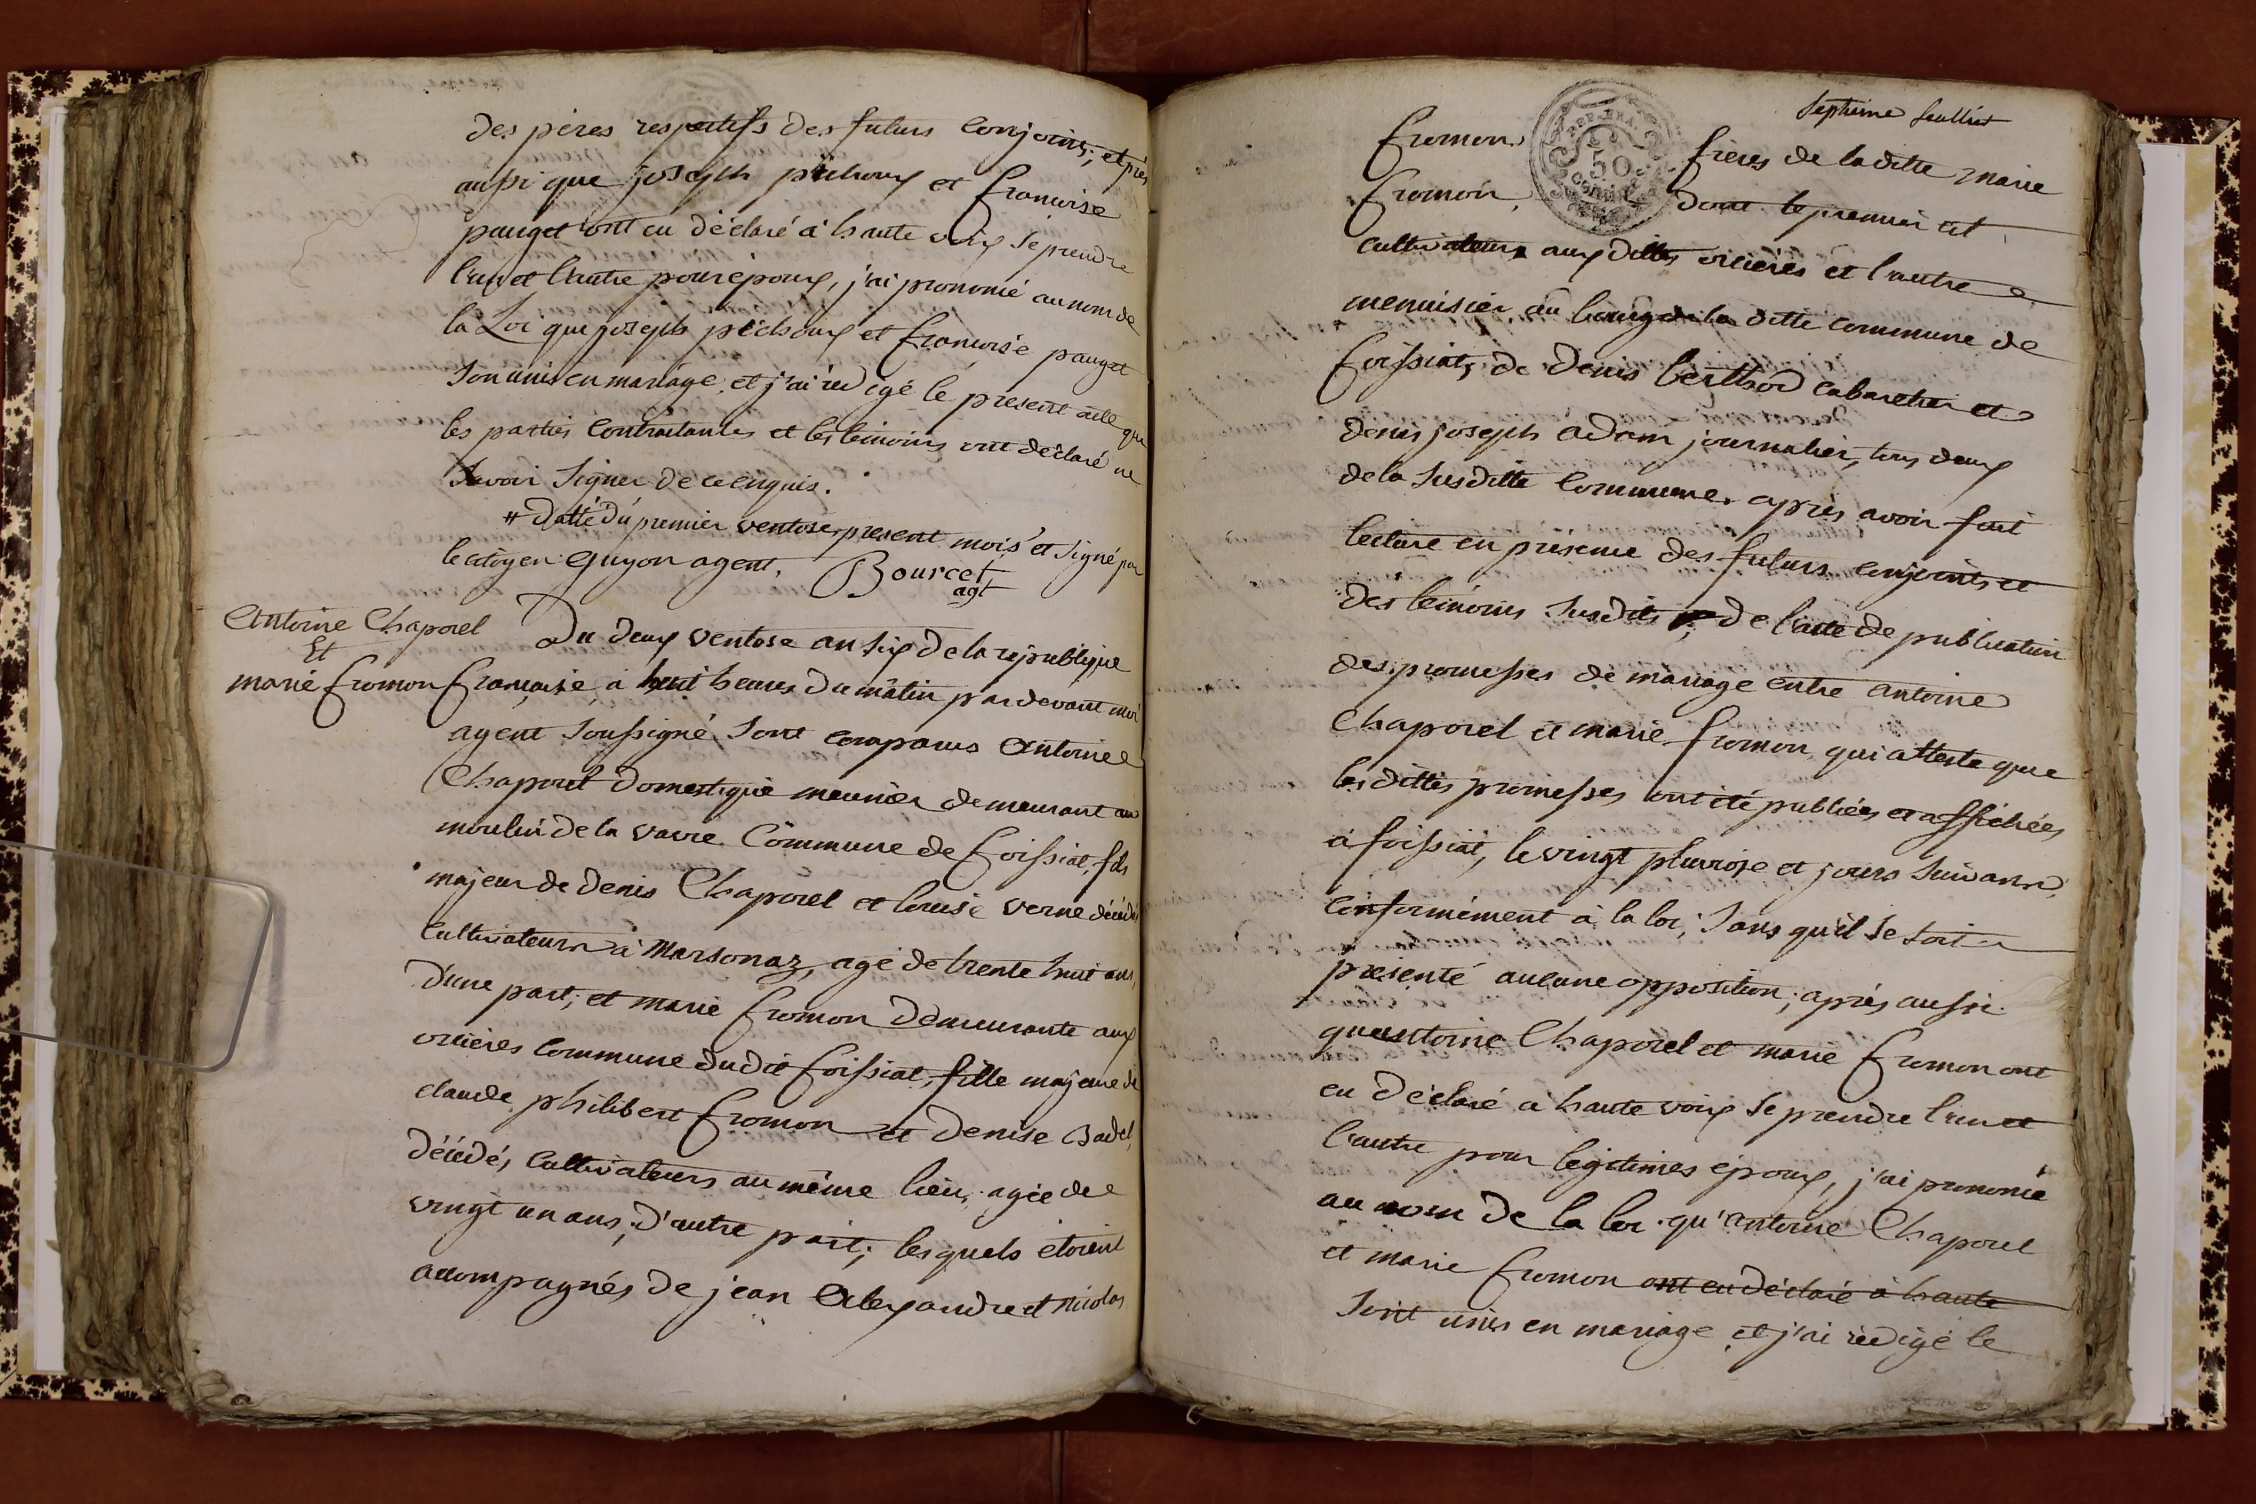 des pères respectifs des futurs conjoins; et près
aussi que joseph pichoux et francoise
pauget ont eu déclaré à haute voix se prendre
l'un et l'autre pour époux, j'ai prononcé au nom de
la Loi que joseph péchoux et francoise pauget
sont unis en mariage, et j'ai redigé le present acte que
les parties contractantes et les temoins ont déclaré ne
savoir signer de ce enquis.
# datté du premier ventose present mois et signé par
le citoyen guyon agent. Bourcet
agt
Antoine Chaporel
Et
marie fromon
Du deux ventose an six de la republique
francaise, à huit heures du matin pardevant moi
agent soussigné sont comparus Antoine
Chaporel domestique meunier demeurant au
moulin de la varre commune de foissiat, fils
majeur de denis Chaporel et louise verne décédés
cultivateurs à marsonaz, agé de trente huit ans,
d'une part; et marie fromon demeurante aux
orcières commune dudit foissiat, fille majeure de
claude philibert fromon et denise Badel,
décédés, cultivateurs au même lieu, agée de
vingt un ans, d'autre part; lesquels étoient
accompagnés de jean alexandre et nicolas
septieme feuillet
fromon, frères de la ditte marie
fromon, dont le premier est
cultivateur aux dittes orcières et l'autre
menuisier au bourg de la ditte commune de
foissiat, de denis berthod cabaretier et
denis joseph adam journalier, tous deux
de la susditte commune. après avoir fait
lecture en présence des futurs conjoints et
des temoins susdits, de l'acte de publication
des promesses de mariage entre antoine
Chaporel et marie fromon, qui atteste que
les dittes promesses ont été publiées et affichées
à foissiat, le vingt pluviose et jours suivans
conformément à la loi, sans qu'il se soit
présenté aucune opposition; après aussi
qu'antoine Chaporel et marie fromon ont
eu déclaré à haute voix se prendre l'un et
l'autre pour legitimes époux, j'ai prononcé
au nom de la loi qu'antoine Chaporel
et marie fromon ont eu déclaré à haute
sont unis en mariage et j'ai rédigé le
REP. FRA.
50
CENTIM.